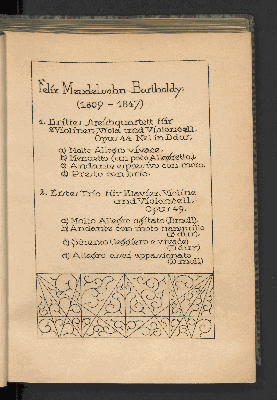 Felix Mendelssohn Bartholdy.
(1809 – 1847)
1. Drittes Streichquartett für
2 Violinen, Viola und Violoncell.
Opus 44 No. 1 in D dur.
a) Molto Allegro vivace.
b) Menuetto (un poco Allegretto).
c) Andante espressivo con moto.
d) Presto con brio.
2. Erstes Trio für Klavier, Violine
und Violoncell.
Opus 49.
a) Molto Allegro agitato (D moll).
b) Andante con moto tranquillo
(B dur).
c) Scherzo (leggiero e vivace)
(D dur).
d) Allegro assai appassionato
(D moll)